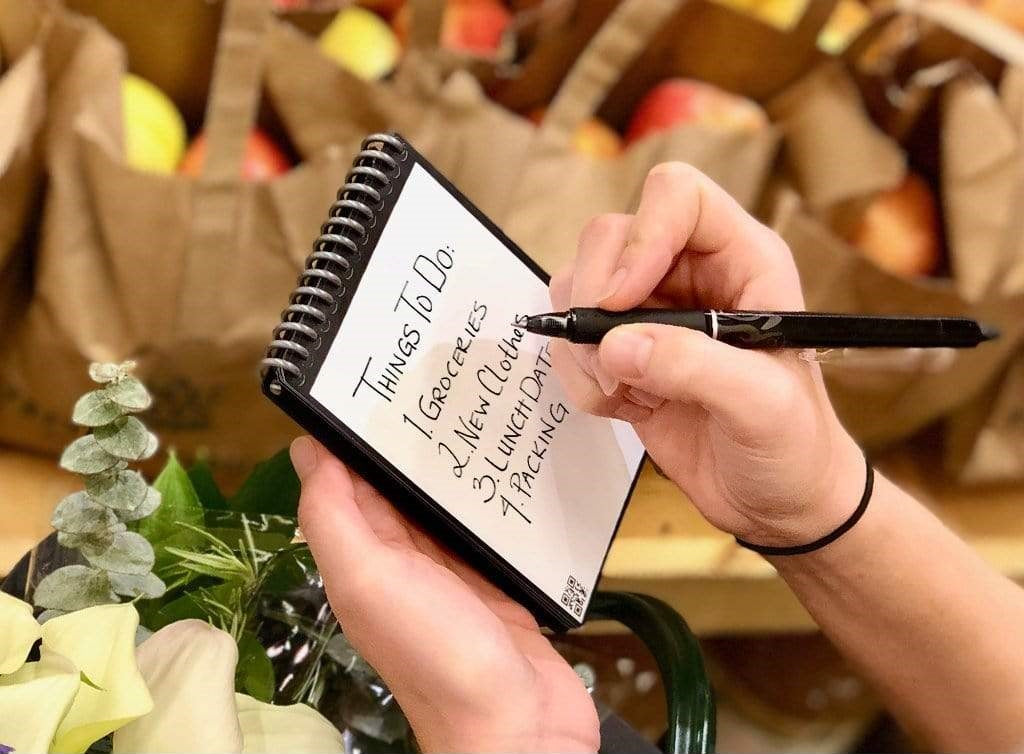 THINGS TO DO:
1. GROCERIES
2. NEW Clothes
3. LUNCH DATE
4. PACKING